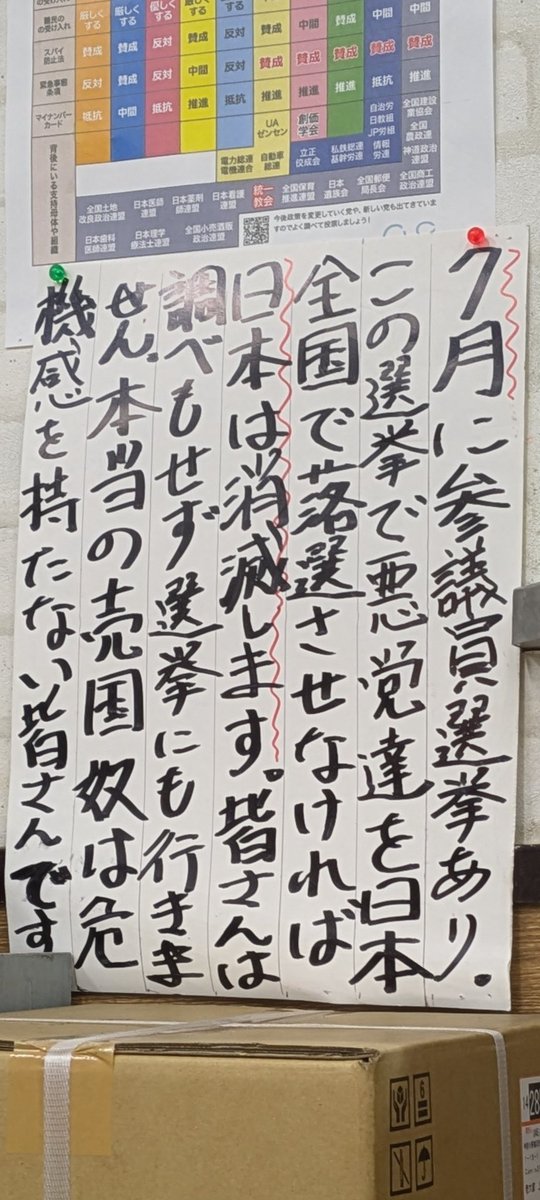 難民の受け入れ 厳しくする 厳しくする 優しくする
スパイ防止法 賛成 賛成 反対 賛成 反対 賛成 中間 賛成 中間 中間
緊急事態条項 反対 賛成 反対 中間 反対 賛成 賛成 賛成 賛成 賛成
マイナンバーカード 抵抗 中間 抵抗 推進 抵抗 推進 推進 推進 推進 推進
背後にいる支持母体や組織
UAゼンセン 創価学会 自治労 日教組 JP労組 全国建設業協会
電力総連 電機連合 自動車総連 立正佼成会 私鉄総連 基幹労連 情報労連 全国農政連 神道政治連盟
全国土地改良政治連盟 日本医師連盟 日本薬剤師連盟 日本看護連盟 統一教会 全国保育推進連盟 日本遺族会 全国郵便局長会 全国商工政治連盟
日本歯科医師連盟 日本理学療法士連盟 全国小売酒販政治連盟
今後政策を変更していく党や、新しい党も出てきていますのでよく調べて投票しましょう!
7月に参議員選挙あり.
この選挙で悪党達を日本
全国で落選させなければ
日本は消滅します。皆さんは
調べもせず選挙にも行きま
せん.本当の売国奴は危
機感を持たない皆さんです